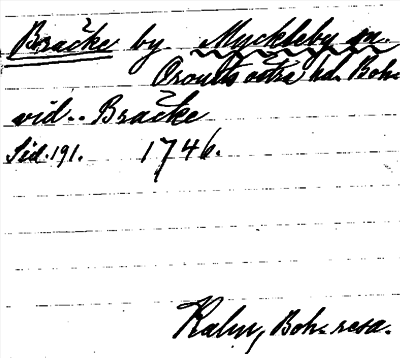 Bračke by Myckleby sn.
Orousts östra hd. Boh.
vid.. Bračke
Sid. 191. 1746.
Kalm, Boh. resa.